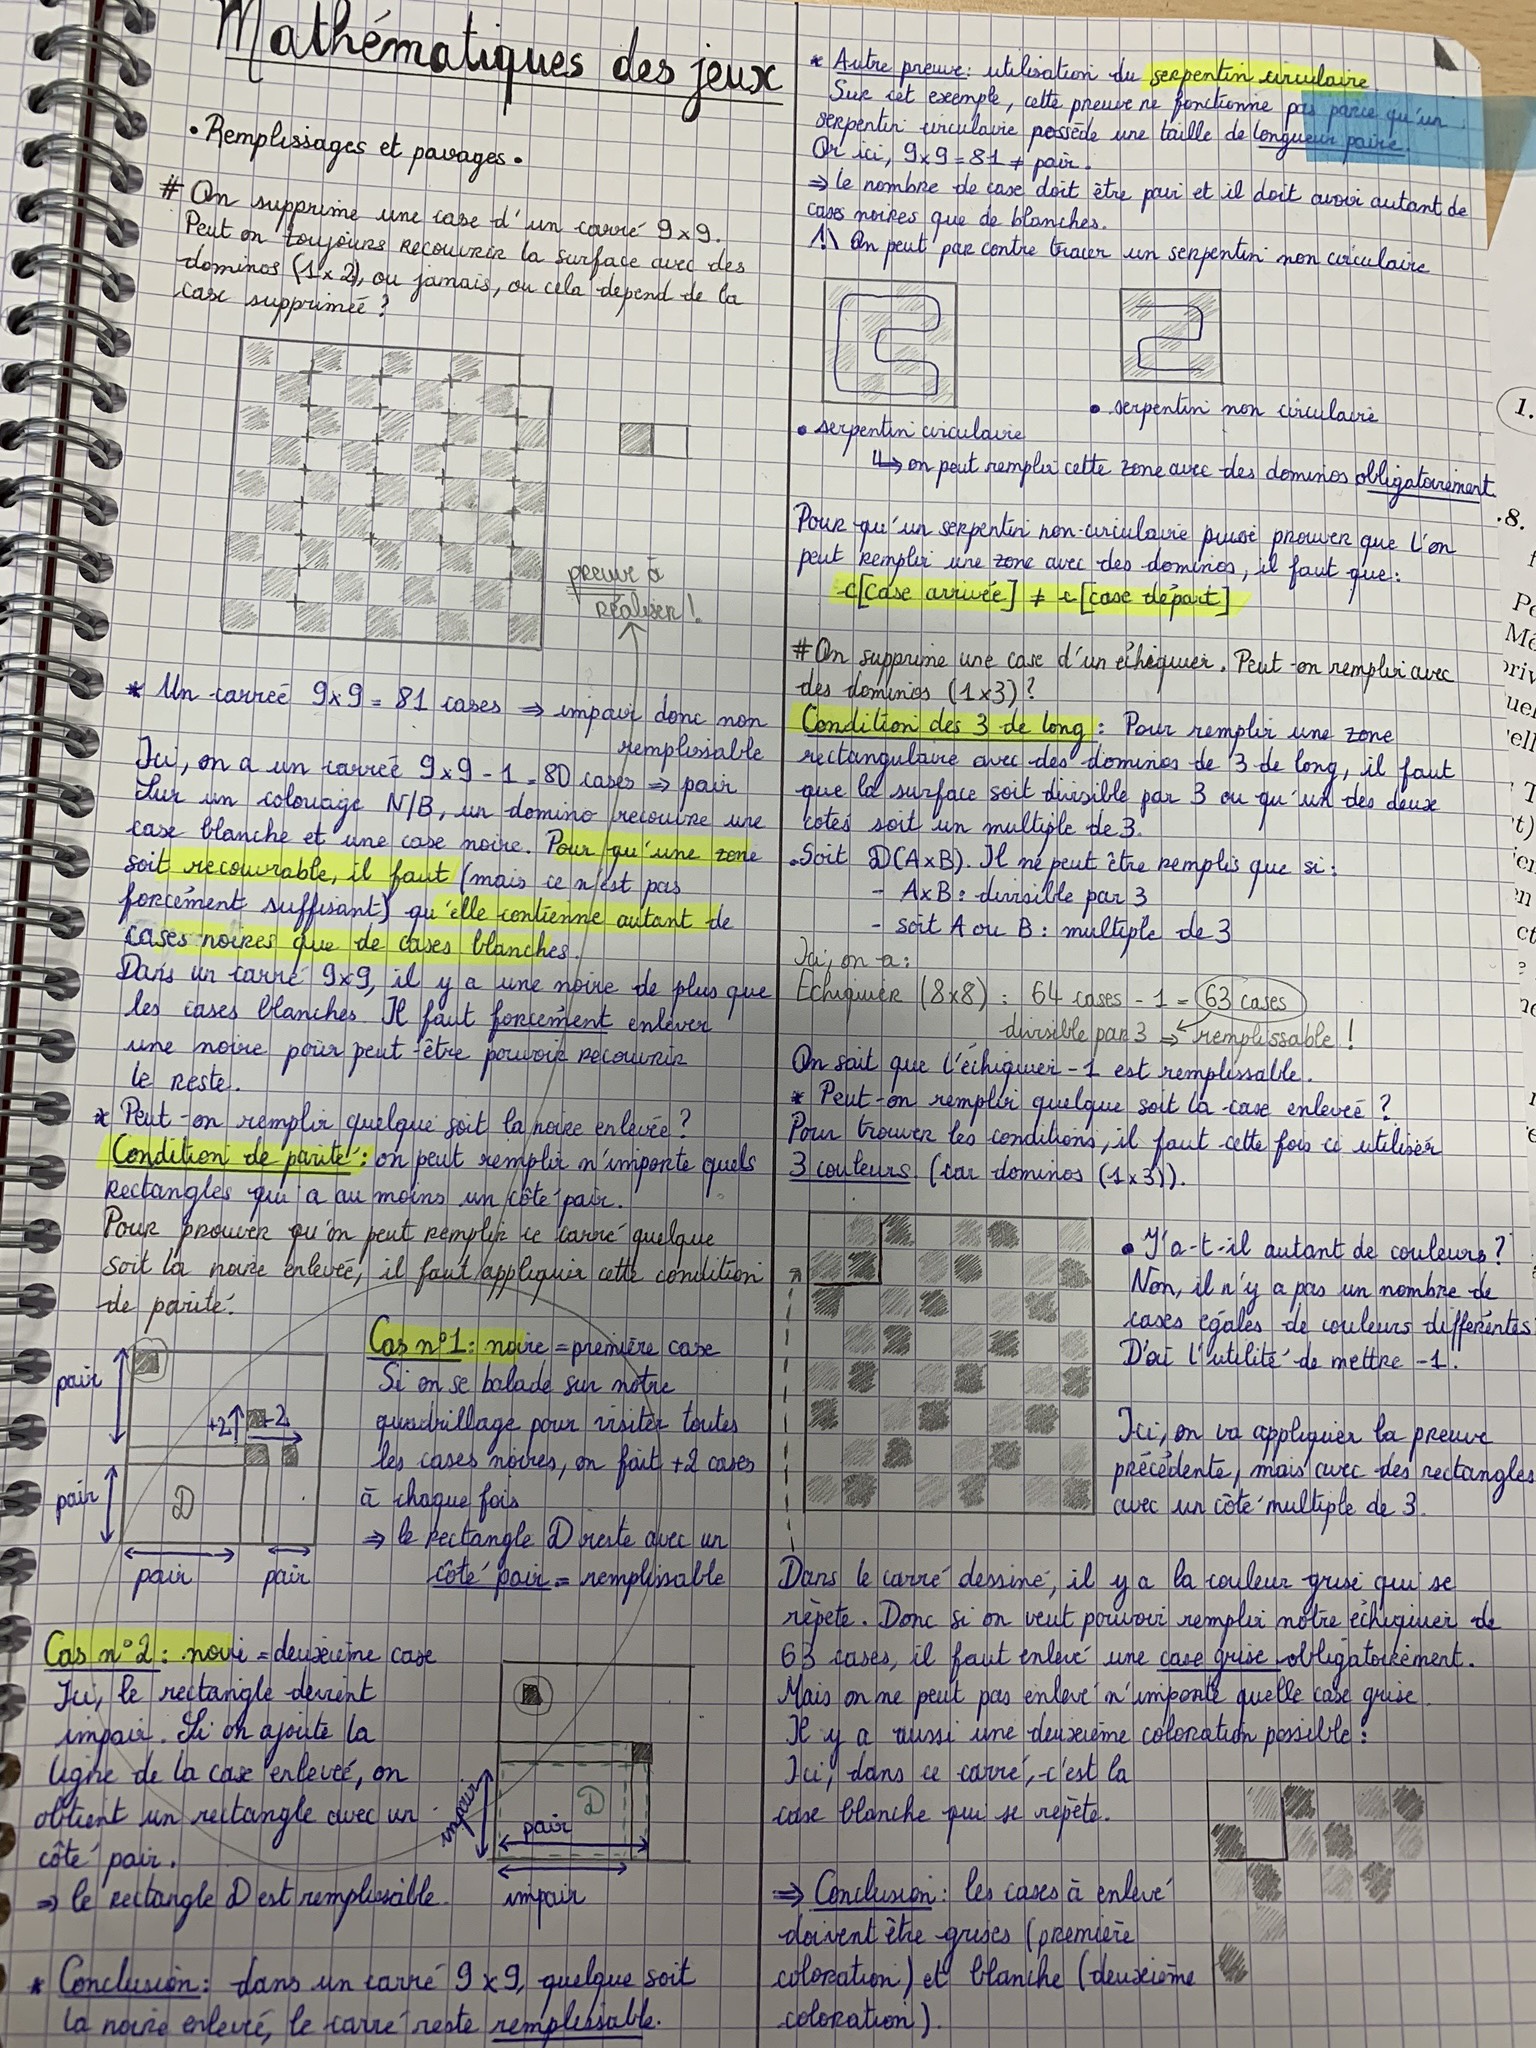 Mathématiques des jeux
• Remplissages et pavages •
# On supprime une case d'un carré 9x9.
Peut on toujours recouvrir la surface avec des
dominos (1x2), ou jamais, ou cela dépend de la
case supprimée ?
preuve à
réaliser !
* Un carreé 9x9 = 81 cases ⇒ impair donc non
remplissable
Ici, on a un carreé 9x9 - 1 = 80 cases ⇒ pair
Sur un coloriage N/B, un domino recouvre une
case blanche et une case noire. Pour qu'une zone
soit recouvrable, il faut (mais ce n'est pas
forcément suffisant) qu'elle contienne autant de
cases noires que de cases blanches.
Dans un carré 9x9, il y a une noire de plus que
les cases blanches. Il faut forcément enlever
une noire pour peut-être pouvoir recouvrir
le reste.
* Peut-on remplir quelque soit la noire enlevée ?
Condition de parité : on peut remplir n'importe quels
rectangles qui a au moins un côté pair.
Pour prouver qu'on peut remplir ce carré quelque
soit la noire enlevée, il faut appliquer cette condition
de parité.
Cas n°1 : noire = première case
Si on se balade sur notre
quadrillage pour visiter toutes
les cases noires, on fait +2 cases
à chaque fois
⇒ le rectangle D reste avec un
côté pair = remplissable
pair
+2
+2
pair
D
pair
pair
Cas n°2 : noire = deuxième case
Ici, le rectangle devient
impair. Si on ajoute la
ligne de la case enlevée, on
obtient un rectangle avec un
côté pair.
⇒ le rectangle D est remplissable.
impair
D
pair
impair
* Conclusion : dans un carré 9x9, quelque soit
la noire enlevée, le carré reste remplissable.
* Autre preuve : utilisation du serpentin circulaire.
Sur cet exemple, cette preuve ne fonctionne pas parce qu'un
serpentin circulaire possède une taille de longueur paire.
Or ici, 9x9 = 81 ≠ pair.
⇒ le nombre de case doit être pair et il doit avoir autant de
cases noires que de blanches.
/!\ On peut par contre tracer un serpentin non circulaire
• serpentin circulaire
• serpentin non circulaire
↳ on peut remplir cette zone avec des dominos obligatoirement.
Pour qu'un serpentin non-circulaire puisse prouver que l'on
peut remplir une zone avec des dominos, il faut que :
c[case arrivée] ≠ c[case départ]
# On supprime une case d'un échiquier. Peut-on remplir avec
des dominos (1x3) ?
Condition des 3 de long : Pour remplir une zone
rectangulaire avec des dominos de 3 de long, il faut
que la surface soit divisible par 3 ou qu'un des deux
cotés soit un multiple de 3.
• Soit D(AxB). Il ne peut être remplis que si :
- AxB : divisible par 3
- soit A ou B : multiple de 3
Ici, on a :
Echiquier (8x8) : 64 cases - 1 = 63 cases
divisible par 3 ⇒ remplissable !
On sait que l'échiquier -1 est remplissable.
* Peut-on remplir quelque soit la case enlevée ?
Pour trouver les conditions, il faut cette fois ci utiliser
3 couleurs (car dominos (1x3)).
• Y'a-t-il autant de couleurs ?
Non, il n'y a pas un nombre de
cases égales de couleurs différentes
D'où l'utilité de mettre -1.
Ici, on va appliquer la preuve
précédente, mais avec des rectangles
avec un côté multiple de 3.
Dans le carré dessiné, il y a la couleur grise qui se
répète. Donc si on veut pouvoir remplir notre échiquier de
63 cases, il faut enlevé une case grise obligatoirement.
Mais on ne peut pas enlevé n'importe quelle case grise
Il y a aussi une deuxième coloration possible :
Ici, dans ce carré, c'est la
case blanche qui se répète.
⇒ Conclusion : les cases à enlevé
doivent être grises (première
coloration) et blanche (deuxième
coloration).
1.
.8.